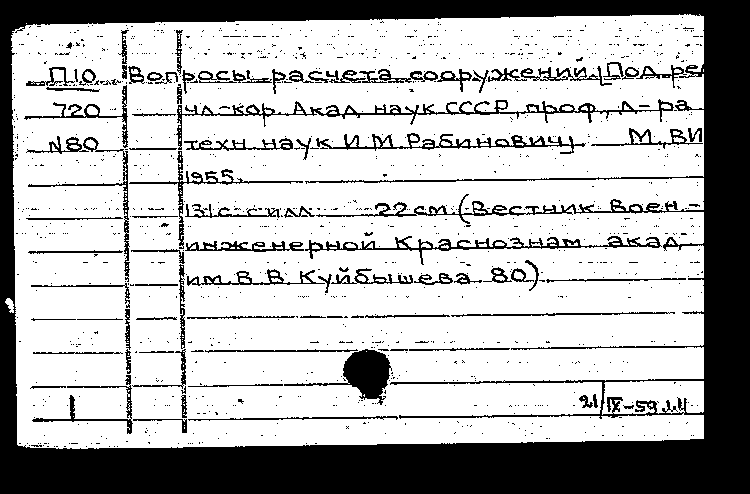 П10 Вопросы расчета сооружений. [Под ред
720 чл-кор. Акад. наук СССР, проф., д-ра
N80 техн. наук И.М. Рабинович] М., ВИ
1955.
131 с. с илл. 22 см (Вестник Воен.-
инженерной Краснознам. акад.
им. В.В. Куйбышева 80).
1 21/IX-59